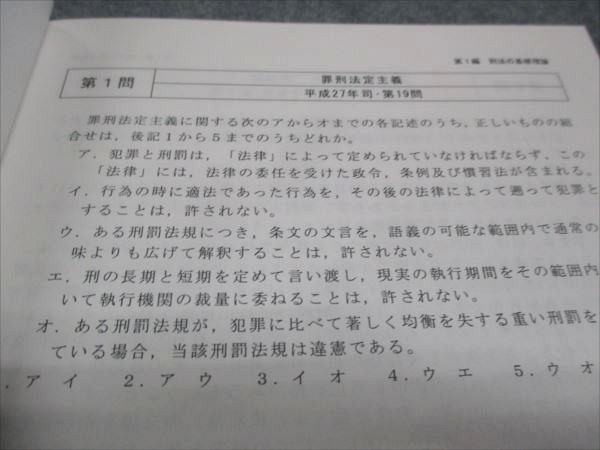 第1編 刑法の基礎理論
第1問
罪刑法定主義
平成27年司・第19問
罪刑法定主義に関する次のアからオまでの各記述のうち，正しいものの組
合せは，後記1から5までのうちどれか。
ア．犯罪と刑罰は，「法律」によって定められていなければならず，この
「法律」には，法律の委任を受けた政令，条例及び慣習法が含まれる。
イ．行為の時に適法であった行為を，その後の法律によって遡って犯罪と
することは，許されない。
ウ．ある刑罰法規につき，条文の文言を，語義の可能な範囲内で通常の
味よりも広げて解釈することは，許されない。
エ．刑の長期と短期を定めて言い渡し，現実の執行期間をその範囲内
いて執行機関の裁量に委ねることは，許されない。
オ．ある刑罰法規が，犯罪に比べて著しく均衡を失する重い刑罰を
ている場合，当該刑罰法規は違憲である。
．ア イ 2．ア ウ 3．イ オ 4．ウ エ 5．ウ オ